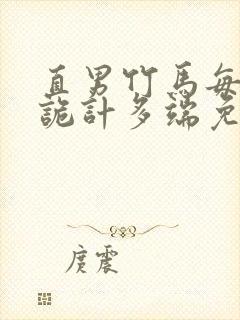 直男竹馬每
詭計多端免
庹震